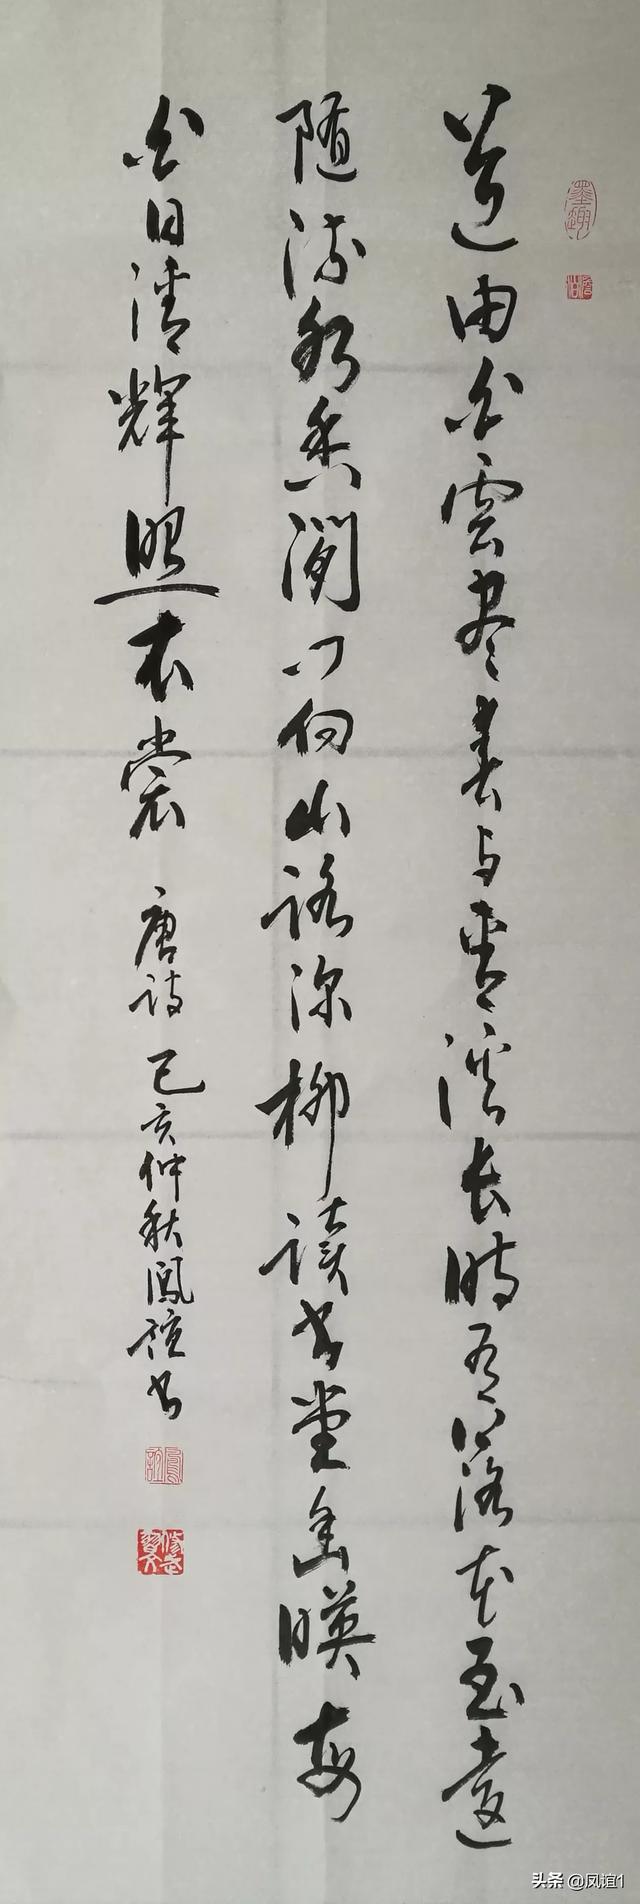 墨趣
道由白雲尽春与青溪长時有落花至遠
随流水香闲门向山路深柳读书堂幽暎每
白日清輝照衣裳 唐诗 己亥仲秋鳳谊书
鳳誼
头条 @凤谊1